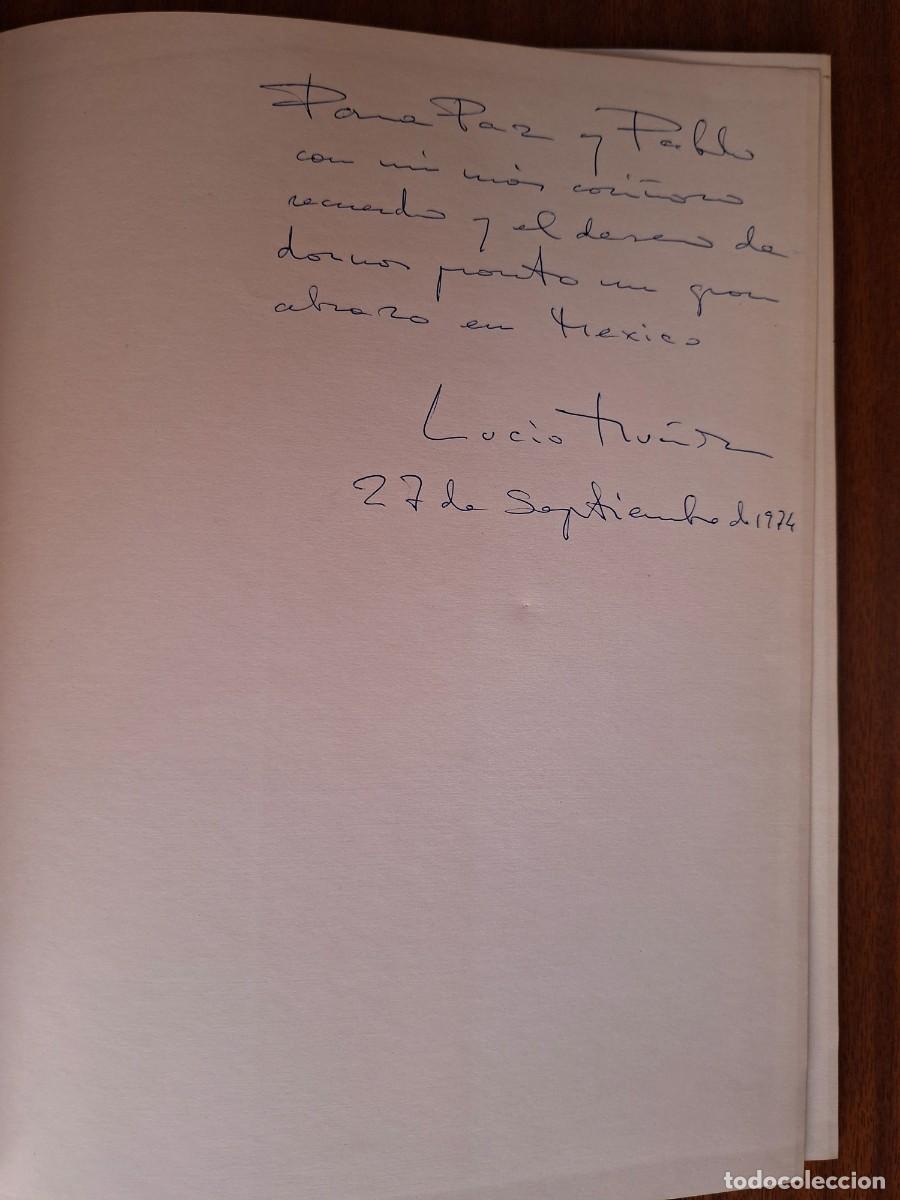 Para Paz y Pablo
con mi más cariñoso
recuerdo y el deseo de
darnos pronto un gran
abrazo en Mexico
Lucio Muñoz
27 de Septiembre de 1974
todocoleccion